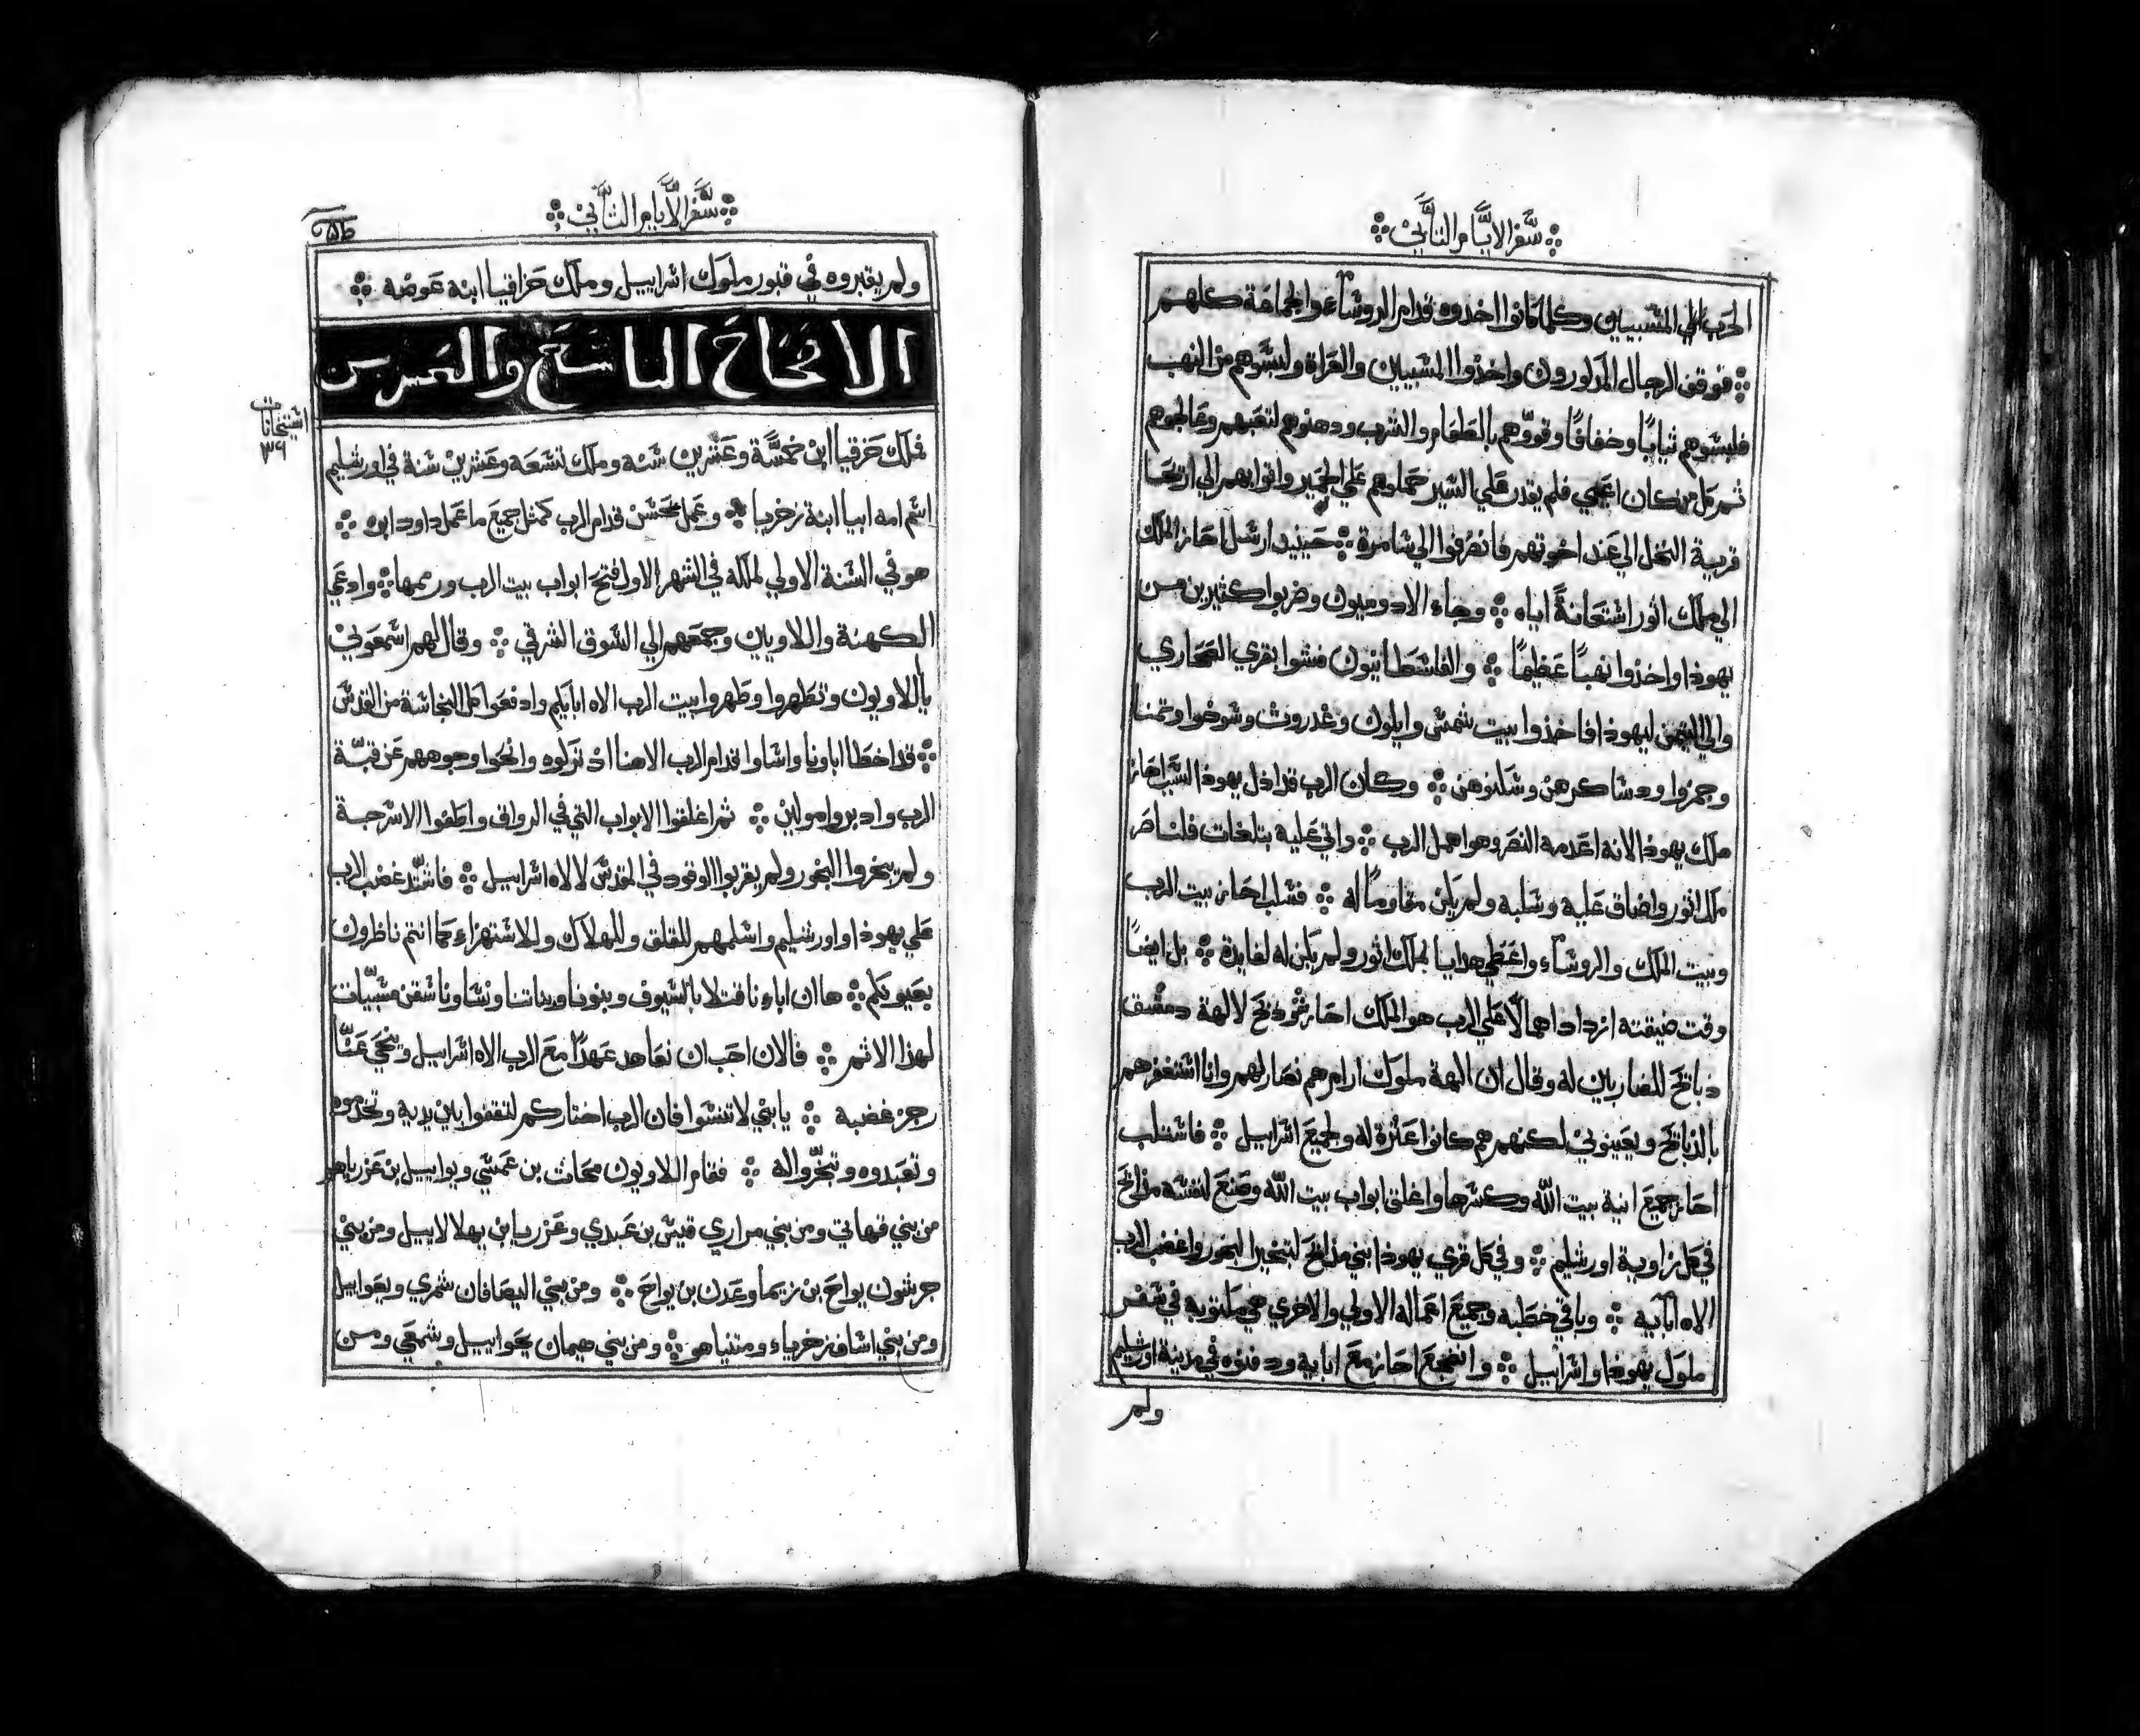 سفر الايام الثاني
الحرب الي المسبيين وكلما كانوا اخدوه قدام الروساء والجماعة كلهم
فوقف الرجال المدكورون واخدوا المسبيين والعراة ولبسوهم من النهب
فلبسوهم ثيابًا وخفافًا وقووهم بالطعام والشرب ودهنوهم لتعبهم وعالجوهم
ثم كل من كان اعمي فلم يقدر علي السير حملوهم علي الحمير واتوا بهم الي اريحا
قرية النخل الي عند اخوتهم فانصرفوا الي شامرة حينيد ارسل احاز الملك
الي ملك اتور استعانةً اياه وجاء الادوميون وضربوا كثيرين من
يهودا واخدوا نهبًا عظيمًا والفلسطانيون فشوا بقري الصحاري
والي اليمن ليهودا فاخدوا بيت شمش وايلون وغدروت وسوخوا وتمنا
وجمزوا ودساكرهن وسكنوهن وكان الرب قد ادل يهودا لسبب احاز
ملك يهودا لانه اعدمه النصر وهو اهمل الرب واتي عليه بتلغات فلناصر
ملك اتور واضاق عليه وسلبه ولم يكن مقاومًا له فسلب احاز بيت الرب
وبيت الملك والروساء واعطي هدايا لملك اتور ولم يكن له لفايدة بل ايضًا
وقت ضيقته ازداد اهمالًا علي الرب هو الملك احاز ودبح لالهة دمشق
دبايح للضاربين له وقال ان الهة ملوك ارام هم نصار لهم وانا استغفرهم
بالدبايح ويعينوني لكنهم هم كانوا عترة له ولجميع اسراييل فاستلب
احاز جميع انية بيت الله وكسرها واغلق ابواب بيت الله وصنع لنفسه مدابح
في كل زاوية اورشليم وفي كل قري يهودا بني مدابح لتبخير البخور واغضب الرب
الاه ابايه وباقي خطبه وجميع اعماله الاولي والاخري هي مكتوبه في سفر
ملوك يهودا واسراييل وانضجع احاز مع ابايه ودفنوه في مدينة اورشليم
ولم
سفر الايام الثاني
ولم يقبروه في قبور ملوك اسراييل وملك حزاقيا ابنه عوضه
الاصحاح التاسع والعشرين
استخانات
٣٩
فملك حزقيا ابن خمسة وعشرين سنه وملك تسعه وعشرين سنة في اورشليم
اسم امه ابيا ابنة زخريا وعمل الحسن قدام الرب كمثل جميع ما عمل داود ابوه
هو في السنة الاولي لملكه في الشهر الاول فتح ابواب بيت الرب ورممها وادعي
الكهنة واللاويين وجمعهم الي السوق الشرقي وقال لهم اسمعوني
يا اللاويون وتطهروا وطهروا بيت الرب الاه ابايكم وادفعوا كل النجاسة من القدس
قد اخطا اباونا واساوا قدام الرب الاهنا اد تركوه وانحوا وجوههم عن قبة
الرب وادبروا مولين ثم اغلقوا الابواب التي في الرواق واطفوا الاسرجة
ولم يبخروا البخور ولم يقربوا الوقود في القدس لالاه اسراييل فاشتد غضب الرب
علي يهودا واورشليم واسلمهم للقلق وللهلاك وللاستهزاء كما انتم ناظرون
بعيونكم ها ان اباءنا قتلا بالسيوف وبنونا وبناتنا ونساونا سقن مسبيات
لهدا الاثم فالان احب ان نعاهد عهدًا مع الرب الاه اسراييل وينحي عنّا
رجز غضبه يا بني لا تنسوا فان الرب اختاركم لتقفوا بين يديه وتخدموه
وتعبدوه وتبخروا له فقام اللاويون محاث بن عمسي ويواييل بن عزرياهو
من بني قهاتي ومن بني مراري قيس بن عبدي وعزريا بن يهلالاييل ومن بني
جرشون يواح بن زيما وعدن بن يواح ومن بني اليصافان شمري ويعواييل
ومن بني اساف زخرياء ومتنياهو ومن بني هيمان يحواييل وشمعي ومن